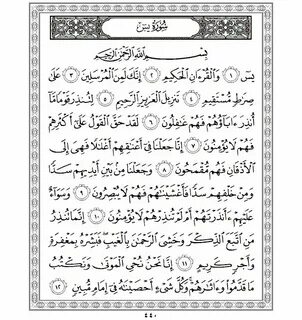 سُورَةُ يسٓ
بِسْمِ ٱللَّهِ ٱلرَّحْمَٰنِ ٱلرَّحِيمِ
يسٓ ١ وَٱلْقُرْءَانِ ٱلْحَكِيمِ ٢ إِنَّكَ لَمِنَ ٱلْمُرْسَلِينَ ٣ عَلَىٰ
صِرَٰطٍ مُّسْتَقِيمٍ ٤ تَنزِيلَ ٱلْعَزِيزِ ٱلرَّحِيمِ ٥ لِتُنذِرَ قَوْمًا مَّآ
أُنذِرَ ءَابَآؤُهُمْ فَهُمْ غَٰفِلُونَ ٦ لَقَدْ حَقَّ ٱلْقَوْلُ عَلَىٰٓ أَكْثَرِهِمْ
فَهُمْ لَا يُؤْمِنُونَ ٧ إِنَّا جَعَلْنَا فِىٓ أَعْنَٰقِهِمْ أَغْلَٰلًا فَهِىَ إِلَى
ٱلْأَذْقَانِ فَهُم مُّقْمَحُونَ ٨ وَجَعَلْنَا مِنۢ بَيْنِ أَيْدِيهِمْ سَدًّا
وَمِنْ خَلْفِهِمْ سَدًّا فَأَغْشَيْنَٰهُمْ فَهُمْ لَا يُبْصِرُونَ ٩ وَسَوَآءٌ
عَلَيْهِمْ ءَأَنذَرْتَهُمْ أَمْ لَمْ تُنذِرْهُمْ لَا يُؤْمِنُونَ ١٠ إِنَّمَا تُنذِرُ
مَنِ ٱتَّبَعَ ٱلذِّكْرَ وَخَشِىَ ٱلرَّحْمَٰنَ بِٱلْغَيْبِ فَبَشِّرْهُ بِمَغْفِرَةٍ
وَأَجْرٍ كَرِيمٍ ١١ إِنَّا نَحْنُ نُحْىِ ٱلْمَوْتَىٰ وَنَكْتُبُ
مَا قَدَّمُوا۟ وَءَاثَٰرَهُمْ وَكُلَّ شَىْءٍ أَحْصَيْنَٰهُ فِىٓ إِمَامٍ مُّبِينٍ ١٢
٤٤٠